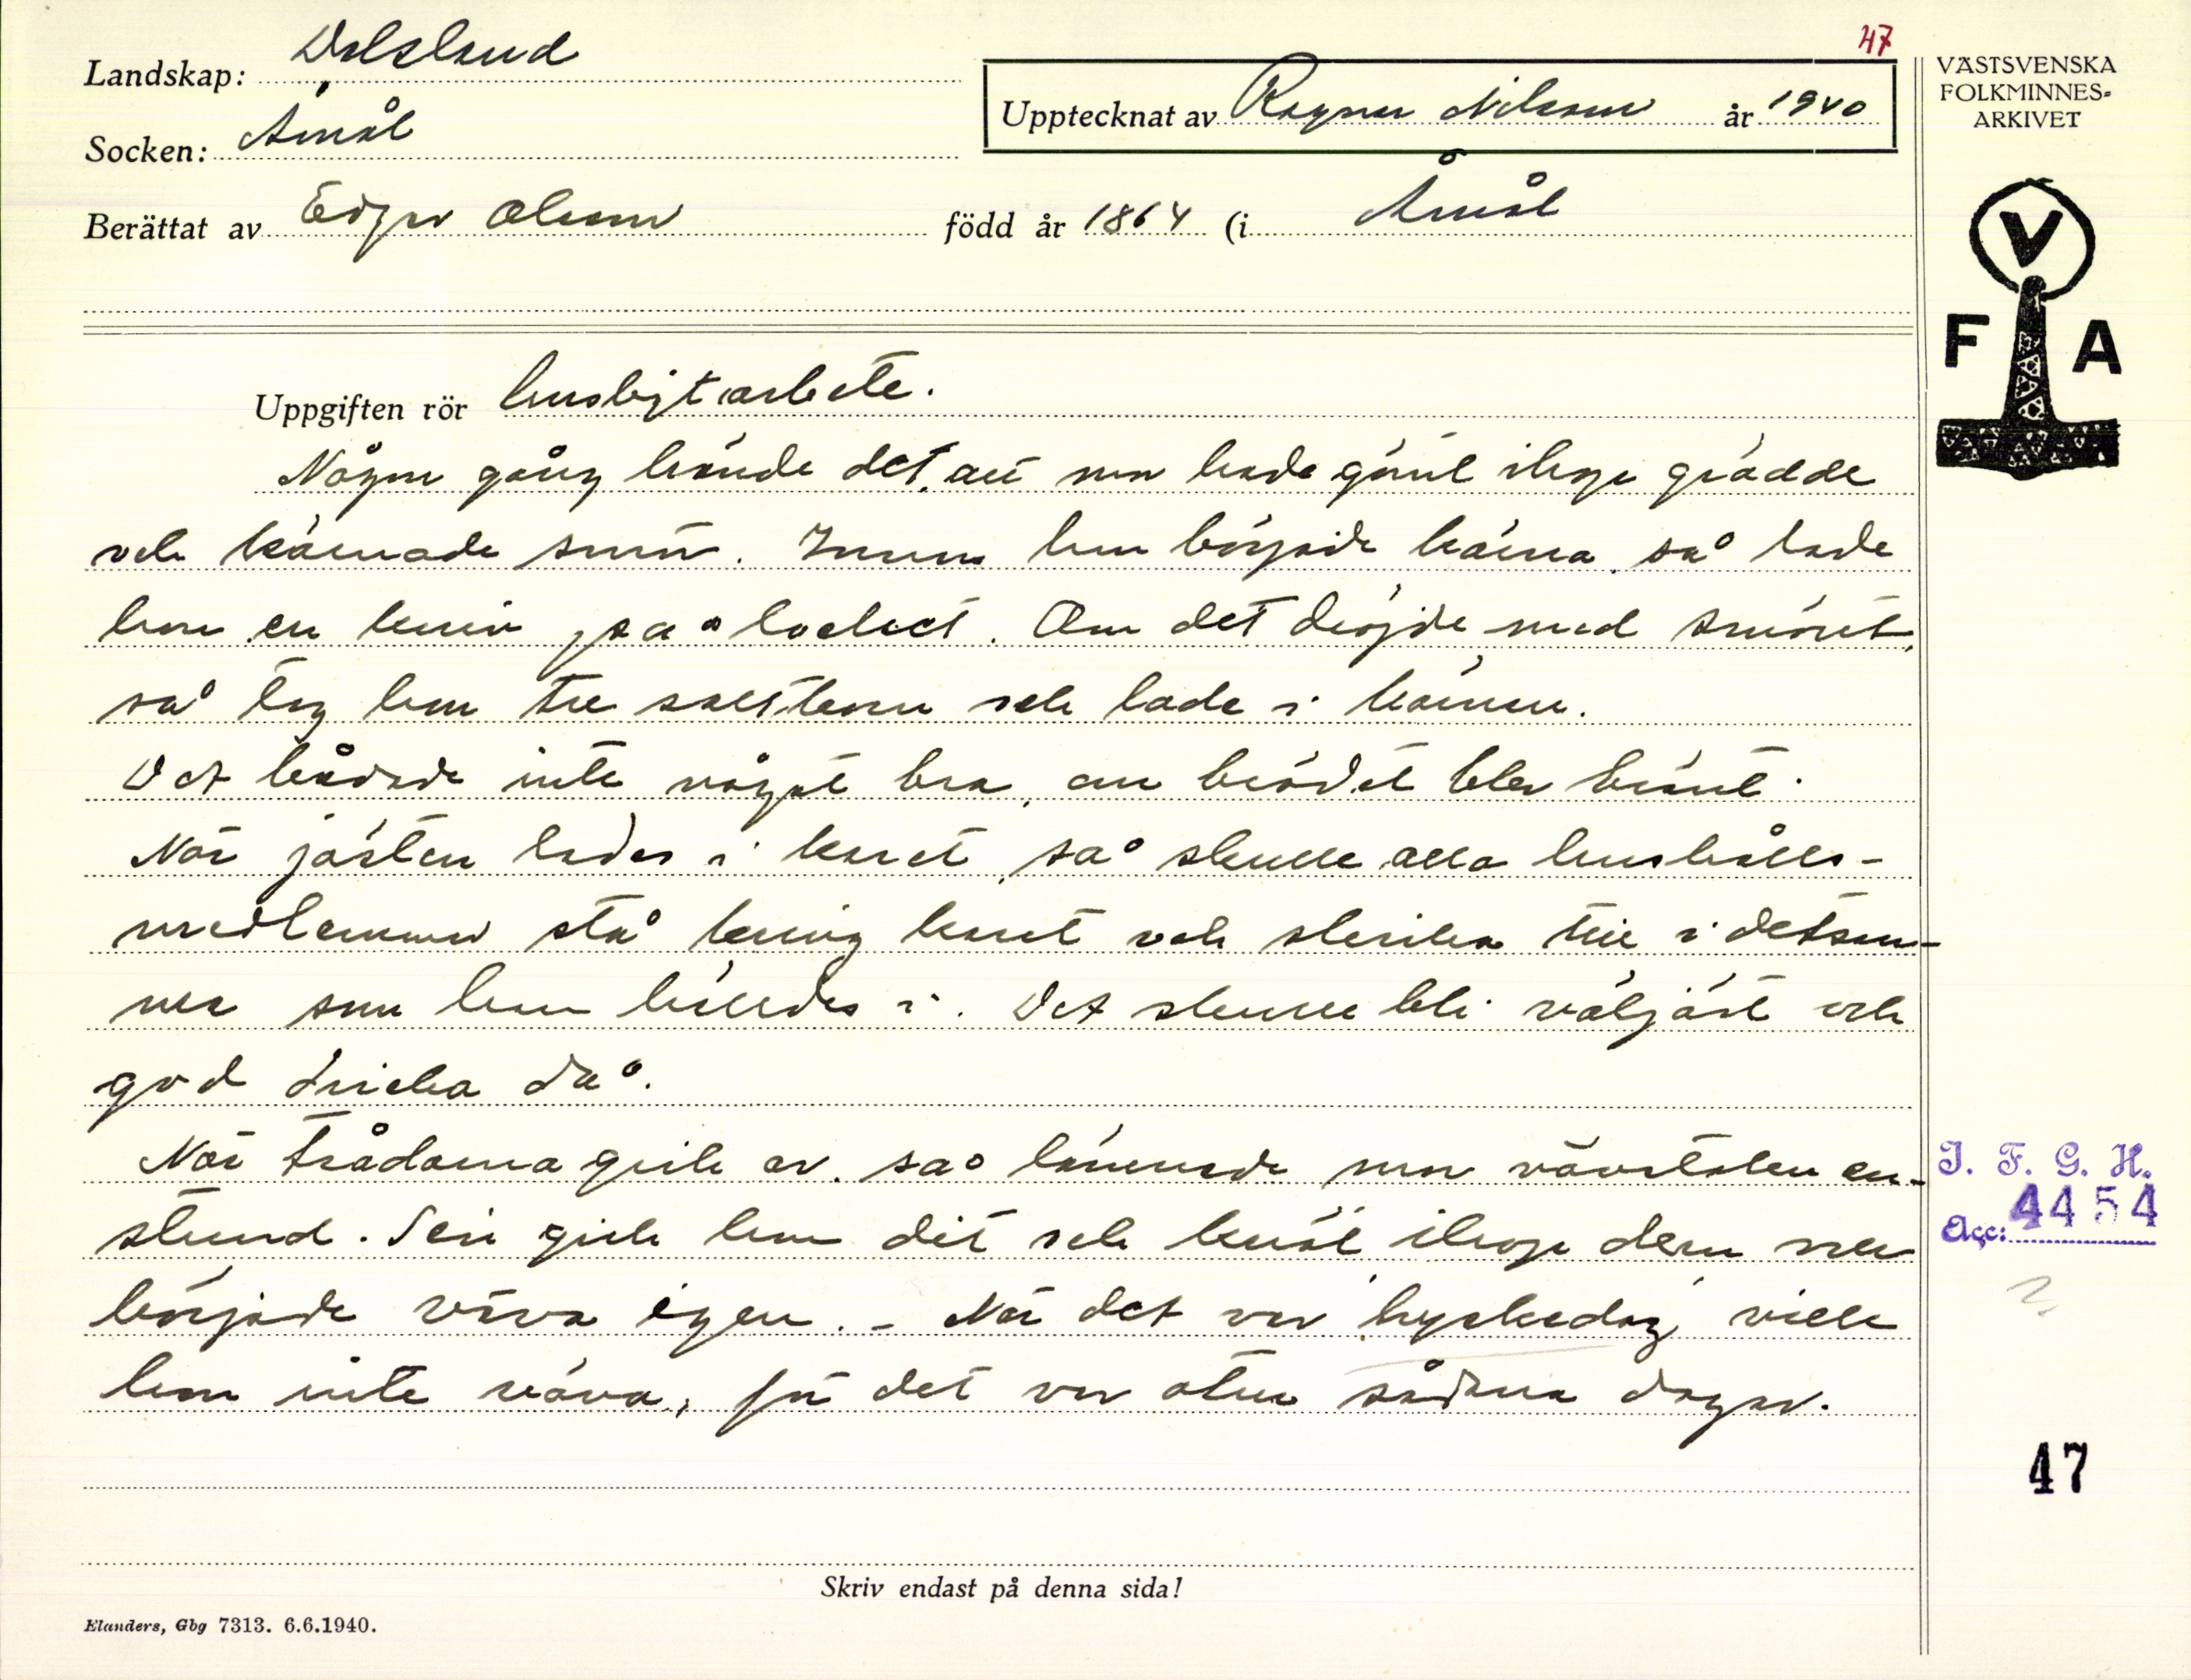 47
Landskap: Dalsland
Socken: Åmål
Upptecknat av Ragnar Nilsson år 1940
Berättat av Edgar Olsson född år 1864 (i Åmål
VÄSTSVENSKA
FOLKMINNES-
ARKIVET
V
F A
Uppgiften rör husligt arbete.
Någon gång hände det, att mor hade gömt ihop grädde
och kärnade smör. Innan hon började kärna, så lade
hon en kniv på locket. Om det dröjde med smöret,
så tog hon tre saltkorn och lade i kärnan.
Det bådade inte något bra, om brödet blev bränt.
När jästen lades i karet, så skulle alla hushålls-
medlemmar stå kring karet och skrika till i detsam-
ma som hon hällde i. Det skulle bli väljäst och
god dricka då.
När trådarna gick av, så lämnade mor vävstolen en
stund. Sen gick hon dit och knöt ihop dem och
började väva igen. - När det var 'hyskedag' ville
hon inte väva, för det var otur sådana dagar.
I. F. G. H.
Acc: 4454
47
Skriv endast på denna sida!
Elanders, Gbg 7313. 6.6.1940.